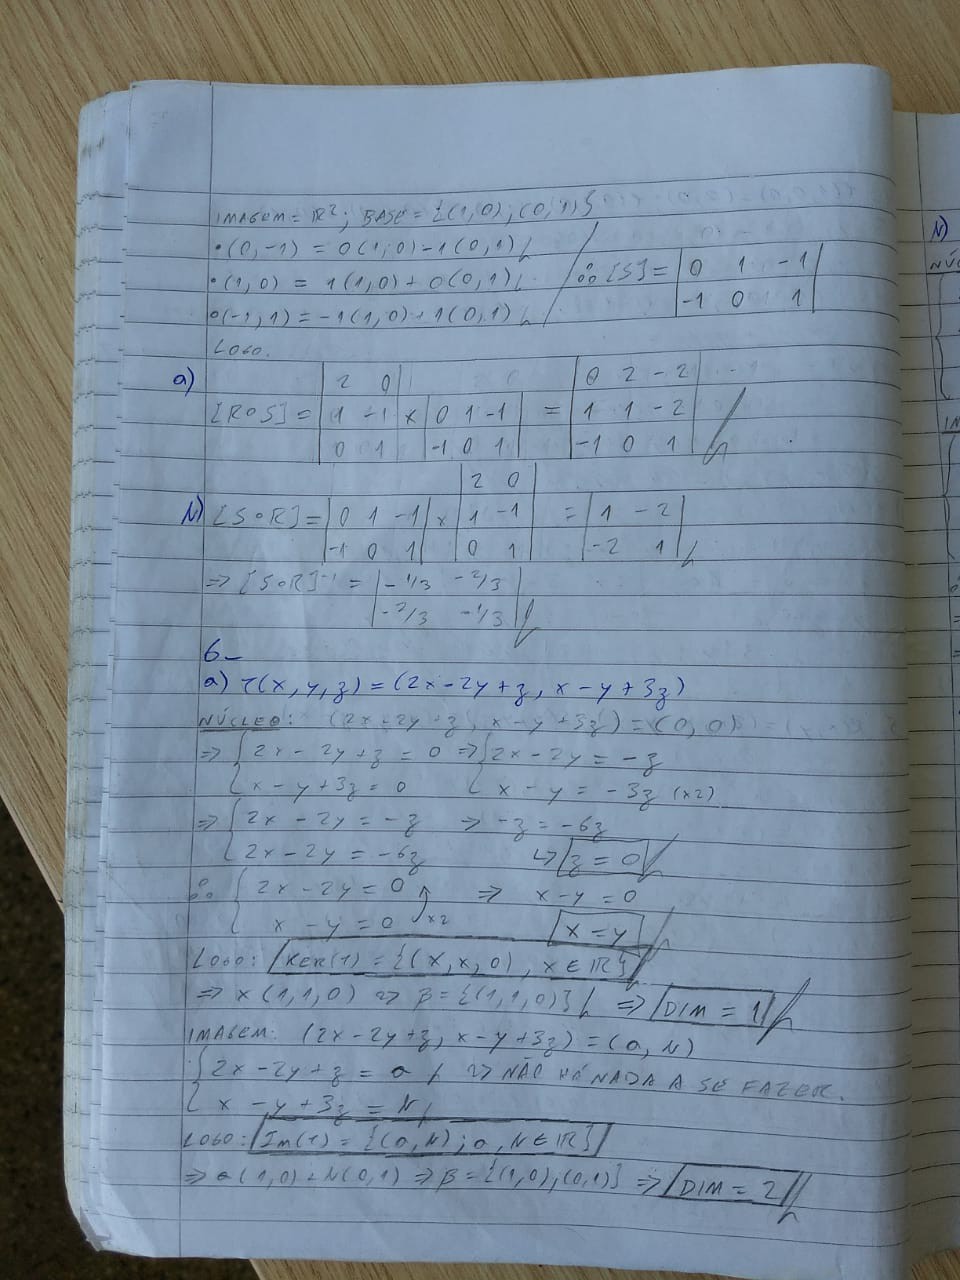 IMAGEM = ℝ²; BASE = {(1,0);(0,1)}
•(0,-1) = 0(1,0)-1(0,1)
•(1,0) = 1(1,0)+0(0,1)
•(-1,1) = -1(1,0)+1(0,1)
∴ [S] = |0 1 -1|
|-1 0 1|
LOGO.
a)
|2 0| |0 2 -2|
[R∘S] = |1 -1| x |0 1 -1| = |1 1 -2|
|0 1| |-1 0 1| |-1 0 1|
|2 0|
b) [S∘R] = |0 1 -1| x |1 -1| = |1 -2|
|-1 0 1| |0 1| |-2 1|
=> [S∘R]⁻¹ = |-1/3 -2/3|
|-2/3 -1/3|
6-
a) T(x,y,z) = (2x-2y+z, x-y+3z)
NÚCLEO: (2x-2y+z, x-y+3z) = (0,0)
=> { 2x-2y+z = 0 => { 2x-2y = -z
{ x-y+3z = 0 { x-y = -3z (x2)
=> { 2x-2y = -z => -z = -6z
{ 2x-2y = -6z ↳ z = 0
∴ { 2x-2y = 0 => x-y = 0
{ x-y = 0 x2 x = y
LOGO: KER(T) = {(x,x,0), x ∈ ℝ}
=> x(1,1,0) ~> β = {(1,1,0)} => DIM = 1
IMAGEM: (2x-2y+z, x-y+3z) = (a,b)
{ 2x-2y+z = a ~> NÃO HÁ NADA A SE FAZER.
{ x-y+3z = b
LOGO: Im(T) = {(a,b); a,b ∈ ℝ}
=> a(1,0)+b(0,1) => β = {(1,0);(0,1)} => DIM = 2